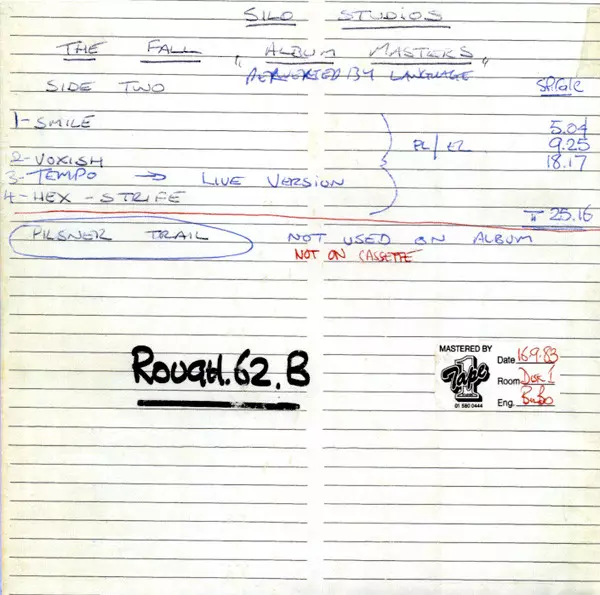 SILO STUDIOS
THE FALL "ALBUM MASTERS"
PERVERTED BY LANGUAGE
SIDE TWO
1-SMILE 5.04
PL/EL 9.25
2-VOXISH 18.17
3-TEMPO → LIVE VERSION
4-HEX-STRIFE
25.16
PILSNER TRAIL NOT USED ON ALBUM
NOT ON CASSETTE
ROUGH.62.B
MASTERED BY
Tape 1
01 580 0444
Date 16.9.83
Room Disk 1
Eng. BilBo